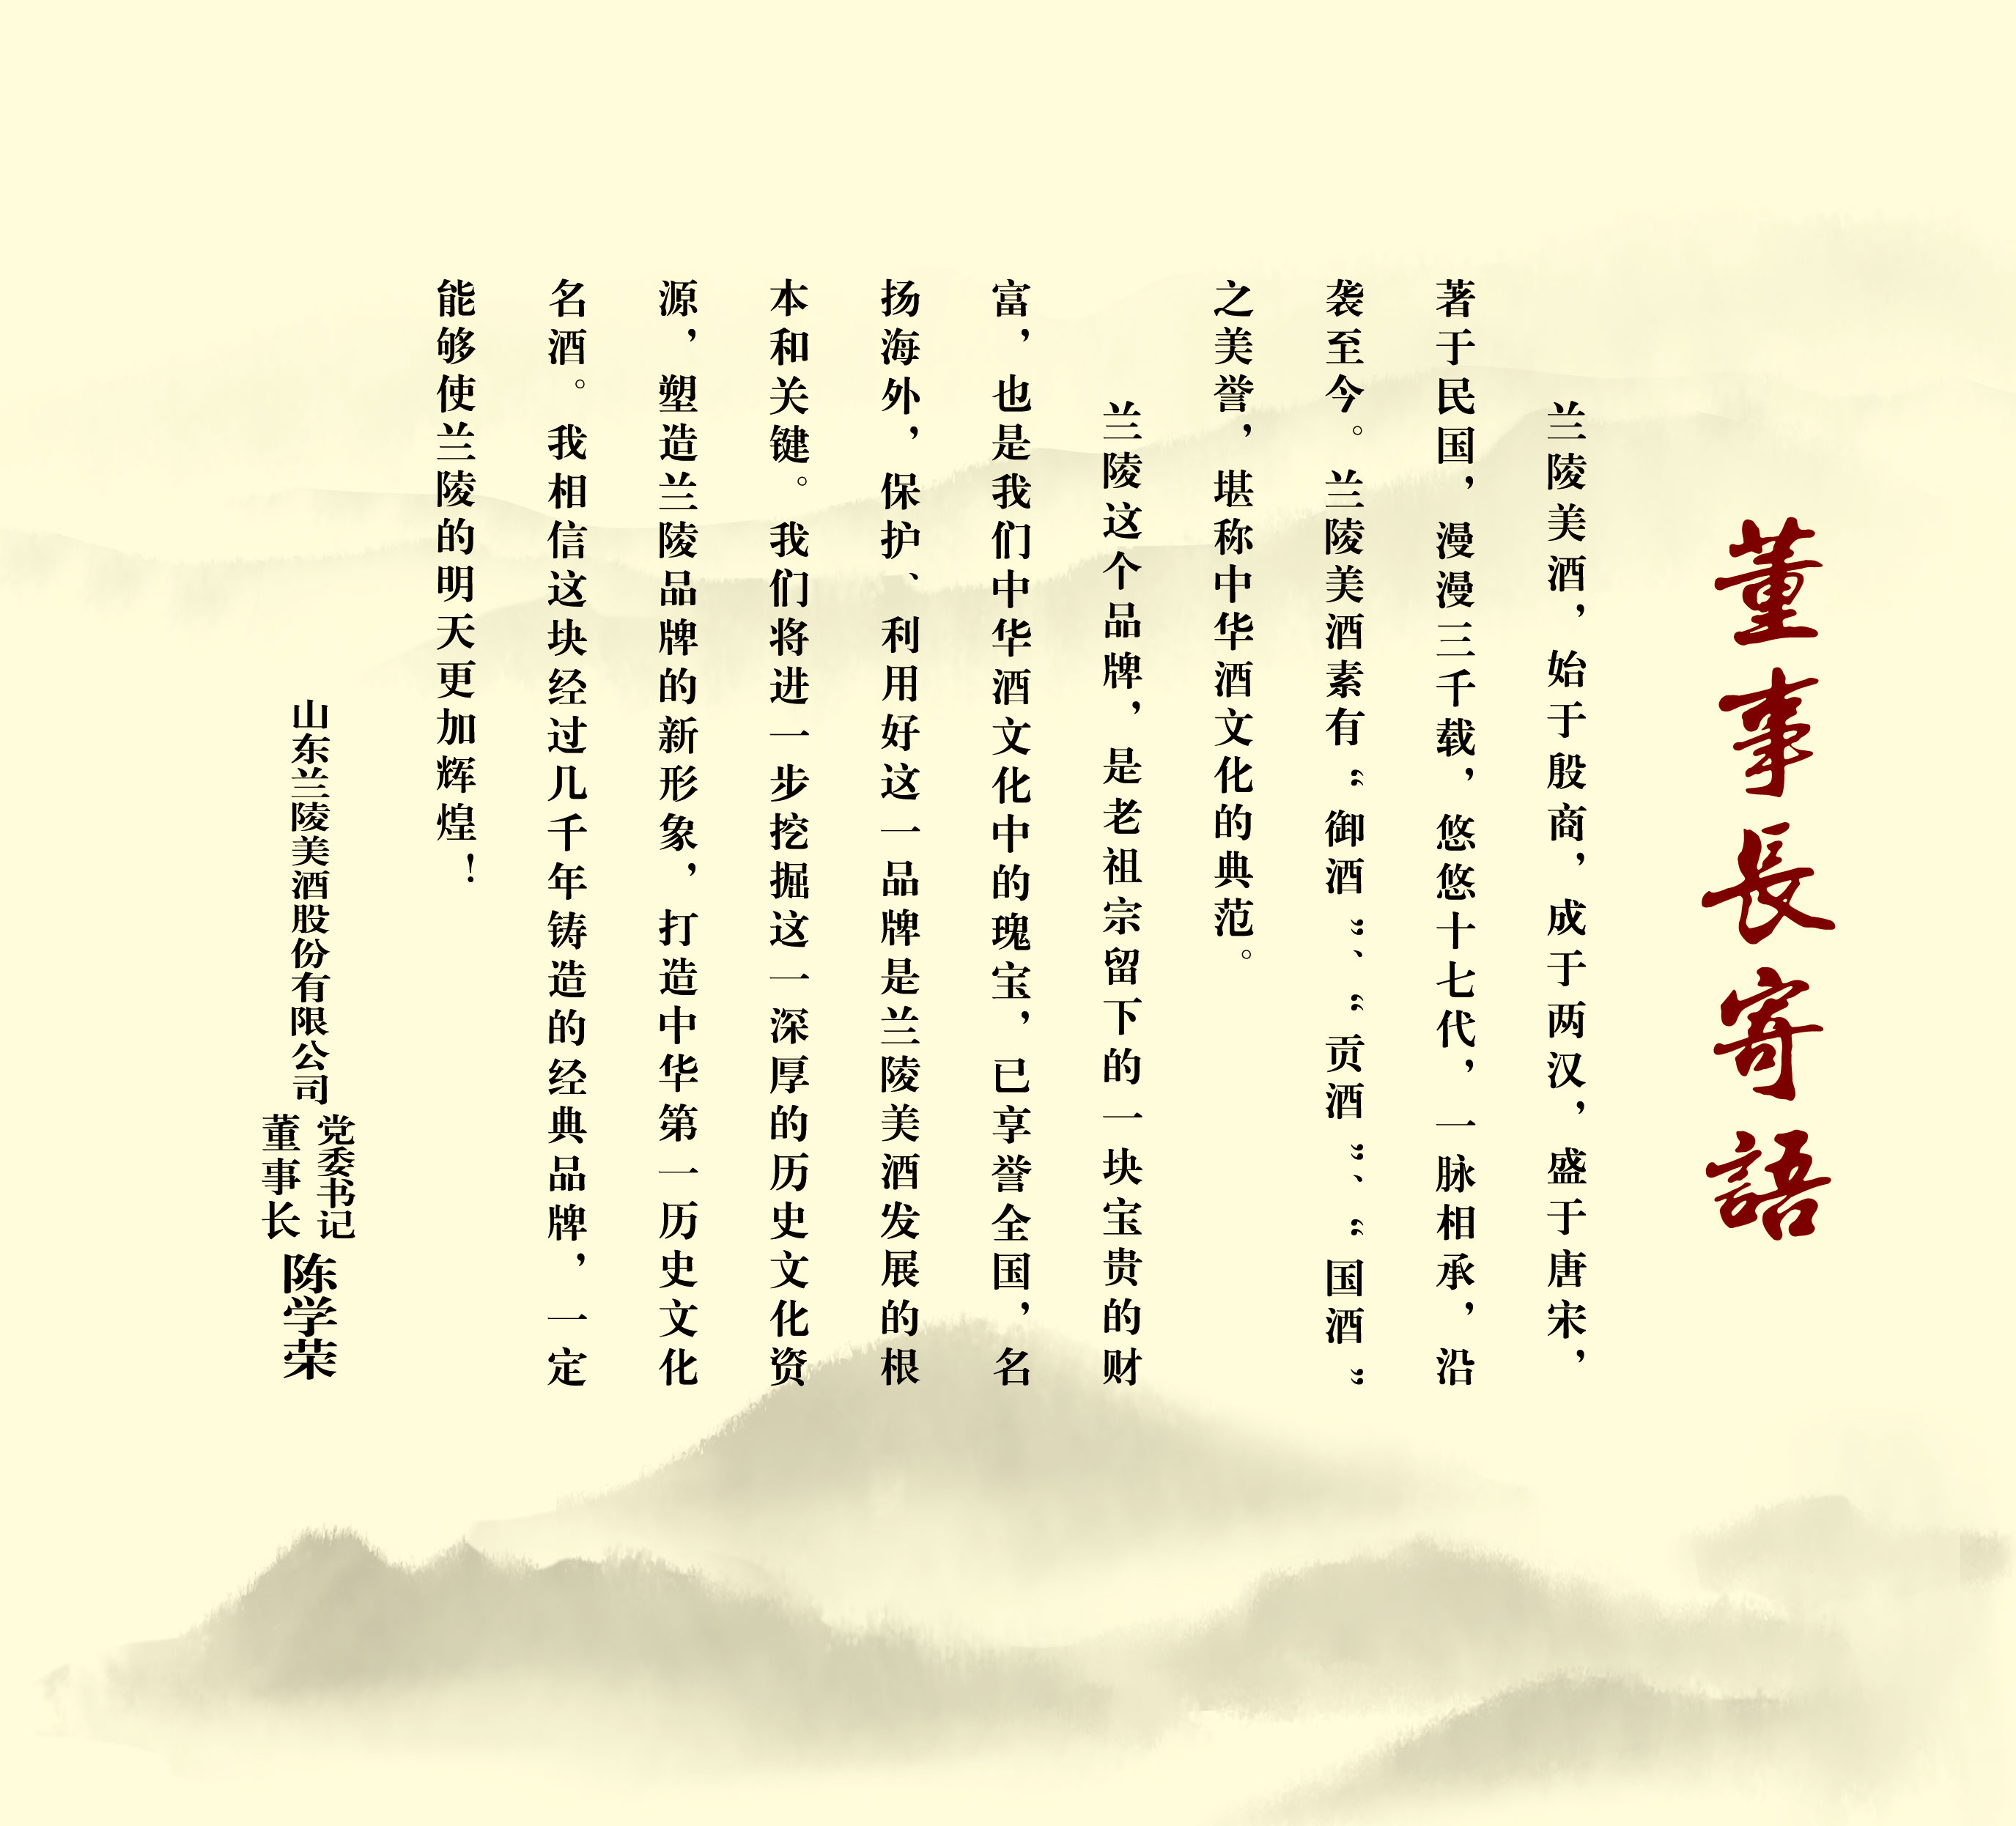 董事長寄語
兰陵美酒，始于殷商，成于两汉，盛于唐宋，
著于民国，漫漫三千载，悠悠十七代，一脉相承，沿
袭至今。兰陵美酒素有“御酒”、“贡酒”、“国酒”
之美誉，堪称中华酒文化的典范。
兰陵这个品牌，是老祖宗留下的一块宝贵的财
富，也是我们中华酒文化中的瑰宝，已享誉全国，名
扬海外，保护、利用好这一品牌是兰陵美酒发展的根
本和关键。我们将进一步挖掘这一深厚的历史文化资
源，塑造兰陵品牌的新形象，打造中华第一历史文化
名酒。我相信这块经过几千年铸造的经典品牌，一定
能够使兰陵的明天更加辉煌！
山东兰陵美酒股份有限公司
党委书记
董事长
陈学荣